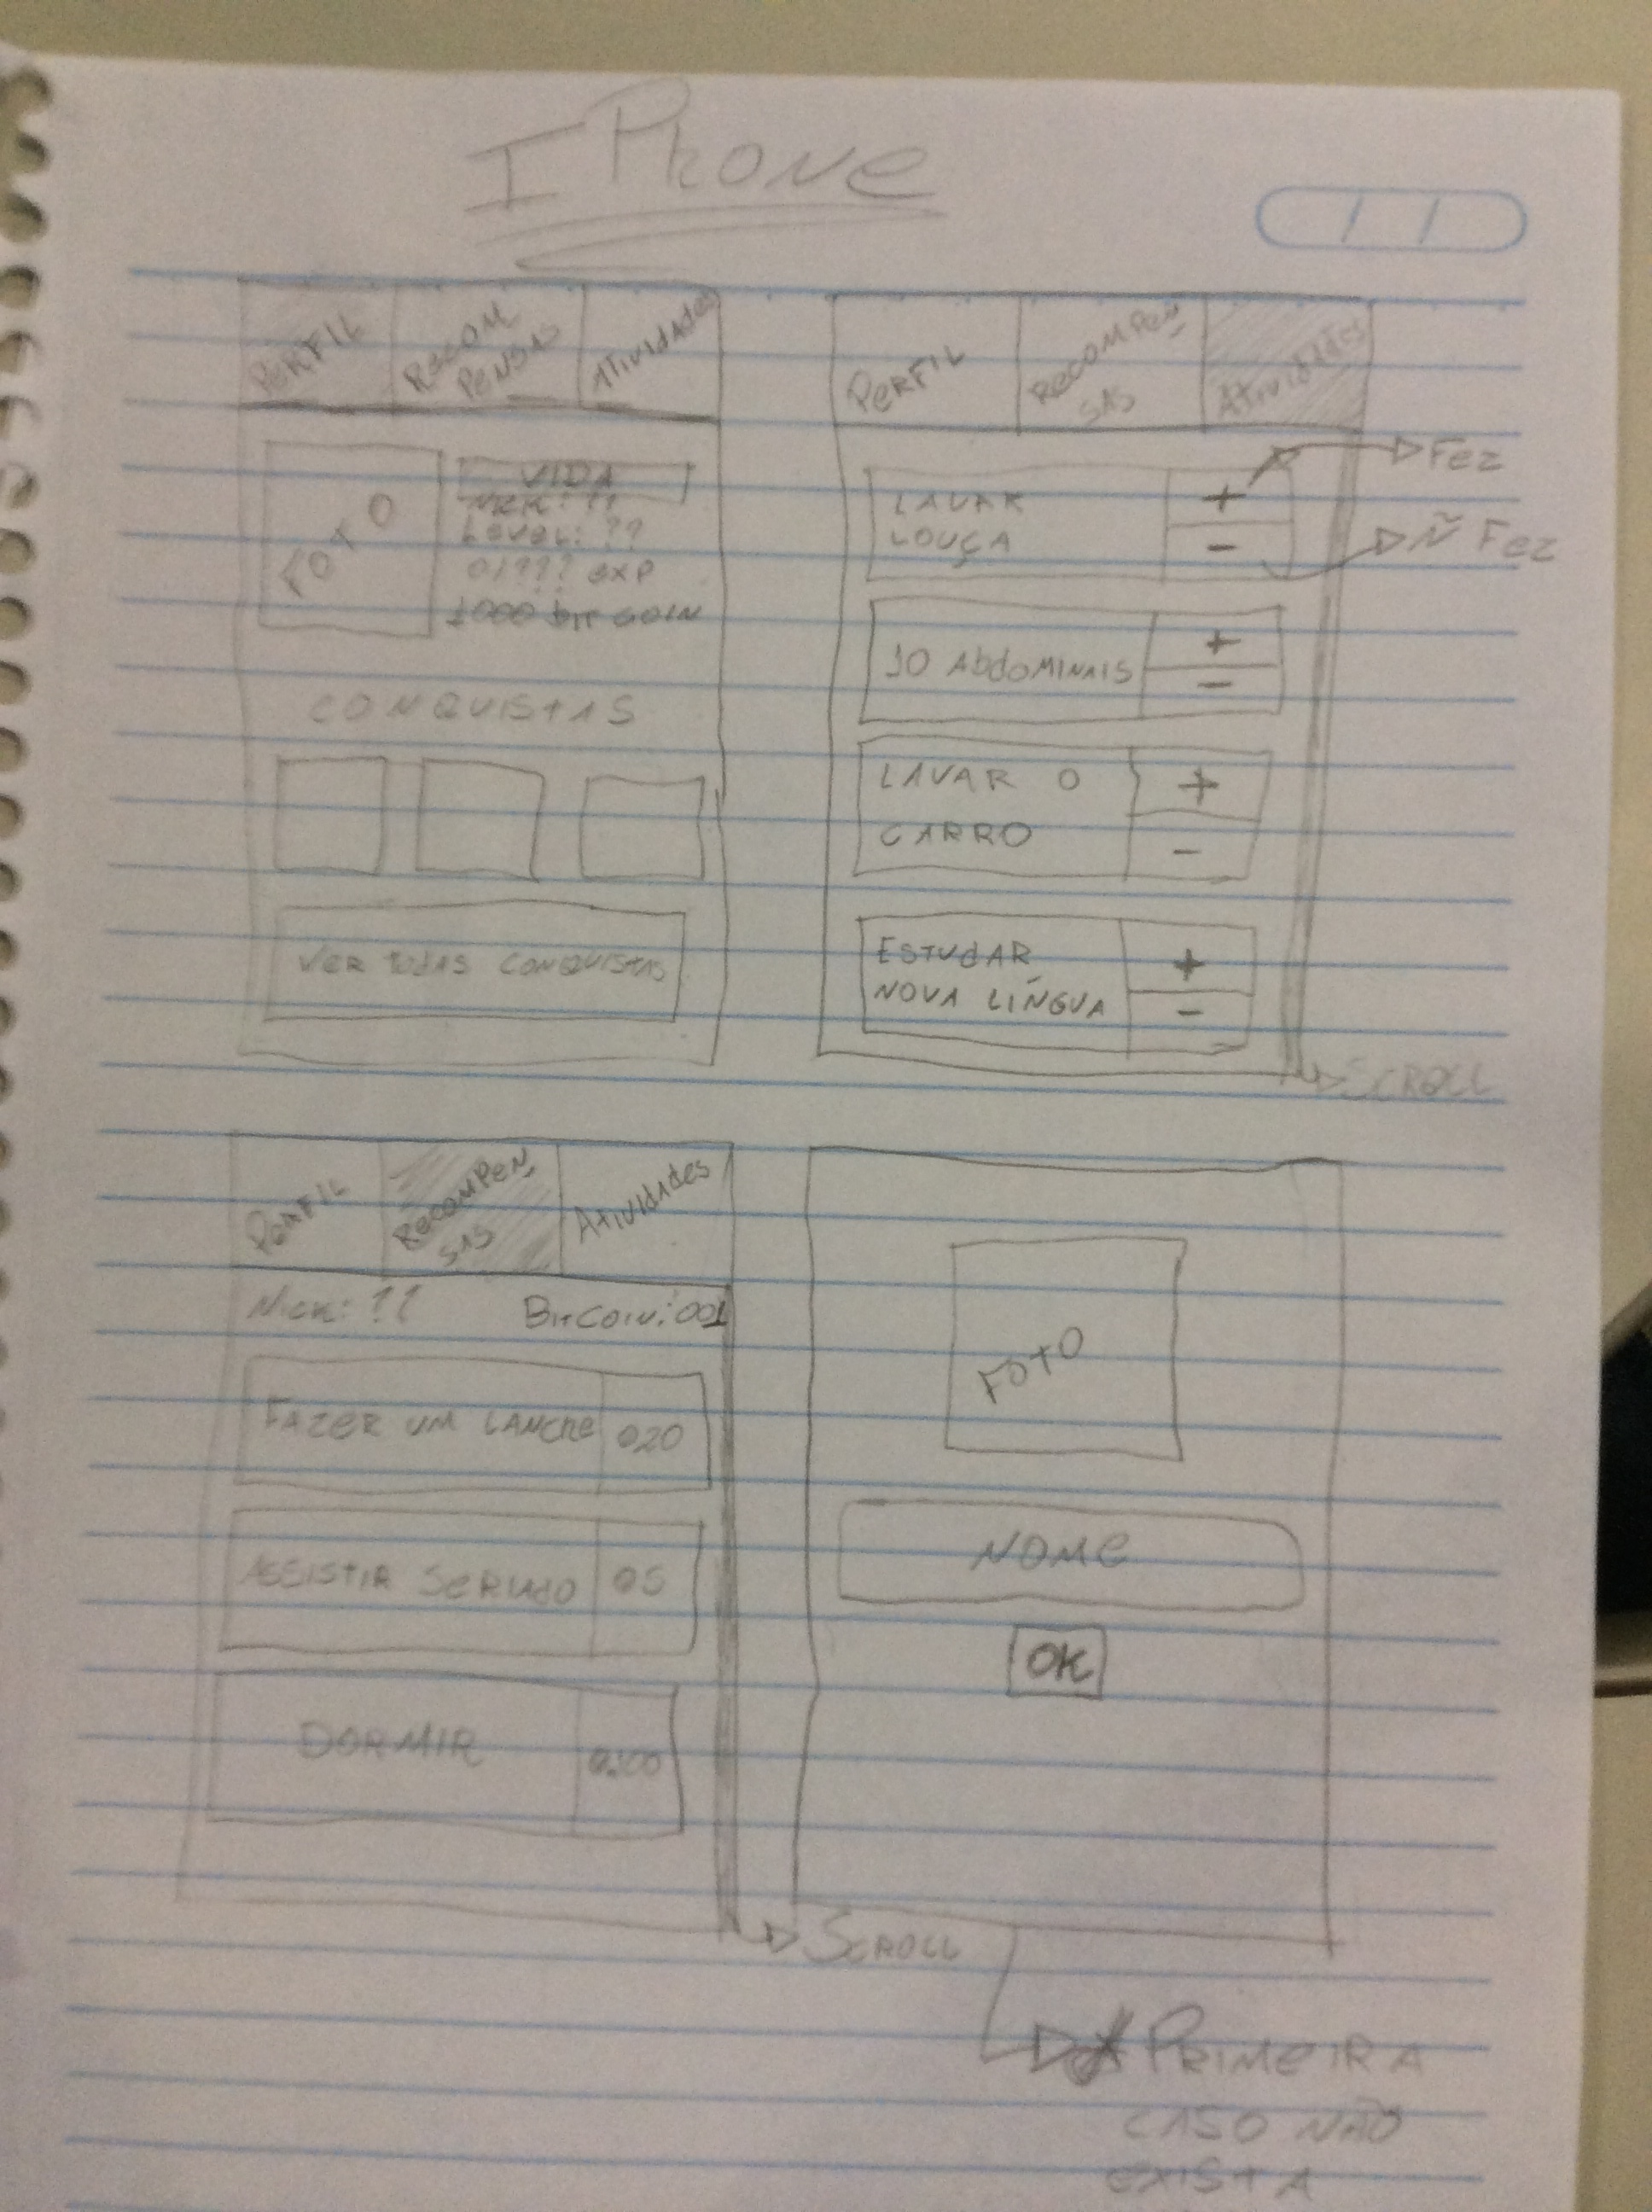 IPhone
/ /
PERFIL
RECOM
PENSAS
Atividades
FOTO
VIDA
NICK: ??
Level: ??
0/??? exp
1000 bit coin
CONQUISTAS
Ver todas conquistas
PERFIL
RECOMPEN
SAS
Atividades
LAVAR
LOUÇA
+
-
Fez
Ñ Fez
10 AbdOMINAIS
+
-
LAVAR O
CARRO
+
-
ESTUdAR
NOVA LÍNGUA
+
-
SCROLL
Perfil
RecomPen
SAS
Atividades
Nick: ??
BitCoin: 001
FAZER UM LANCHE
020
ASSISTIR SERIADO
05
DORMIR
SCROLL
FOTO
NOMe
OK
PRIMEIRA
CASO NÃO
EXISTA